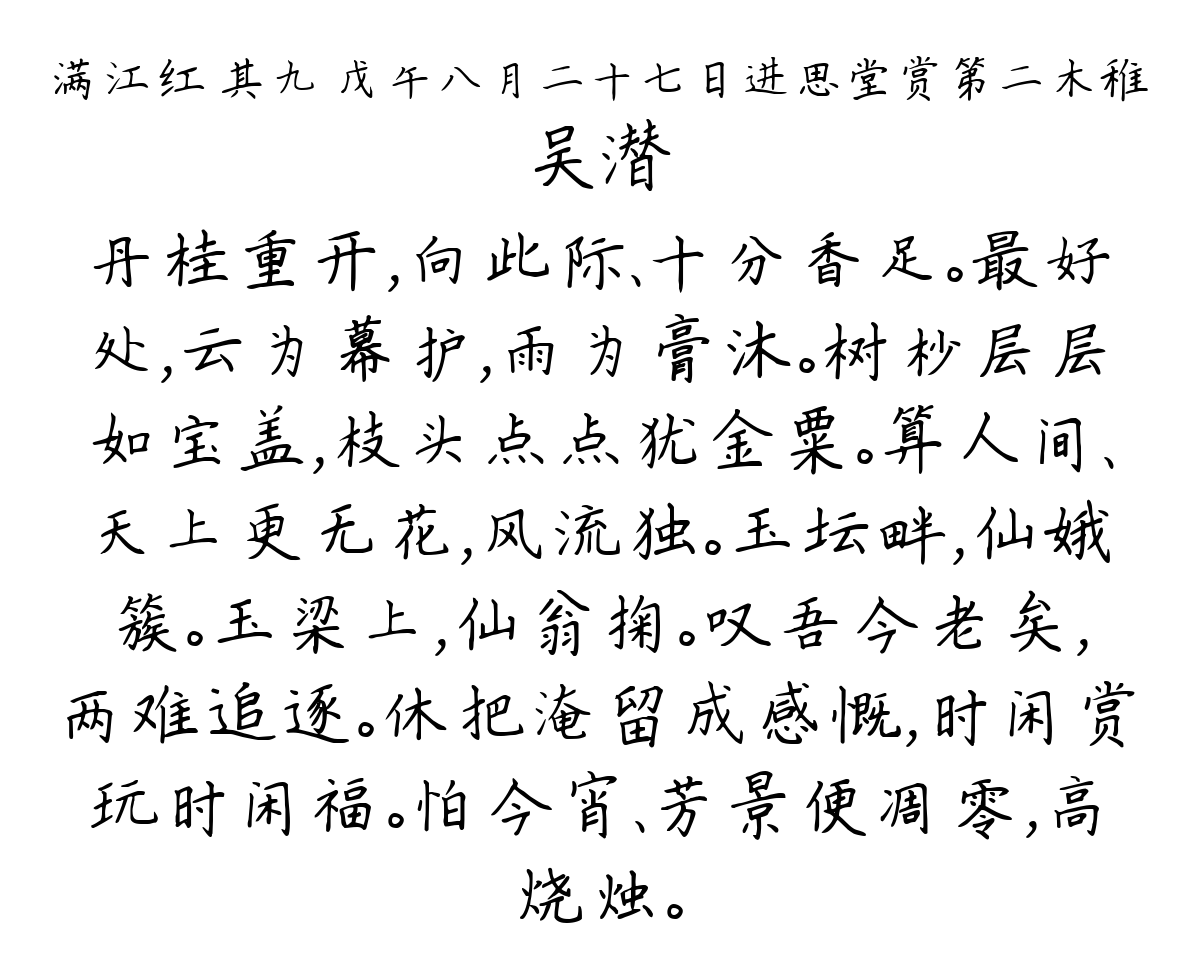 满江红 其九 戊午八月二十七日进思堂赏第二木稚
吴潜
丹桂重开,向此际、十分香足。最好
处,云为幕护,雨为膏沐。树杪层层
如宝盖,枝头点点犹金粟。算人间、
天上更无花,风流独。玉坛畔,仙娥
簇。玉梁上,仙翁掬。叹吾今老矣,
两难追逐。休把淹留成感慨,时闲赏
玩时闲福。怕今宵、芳景便凋零,高
烧烛。